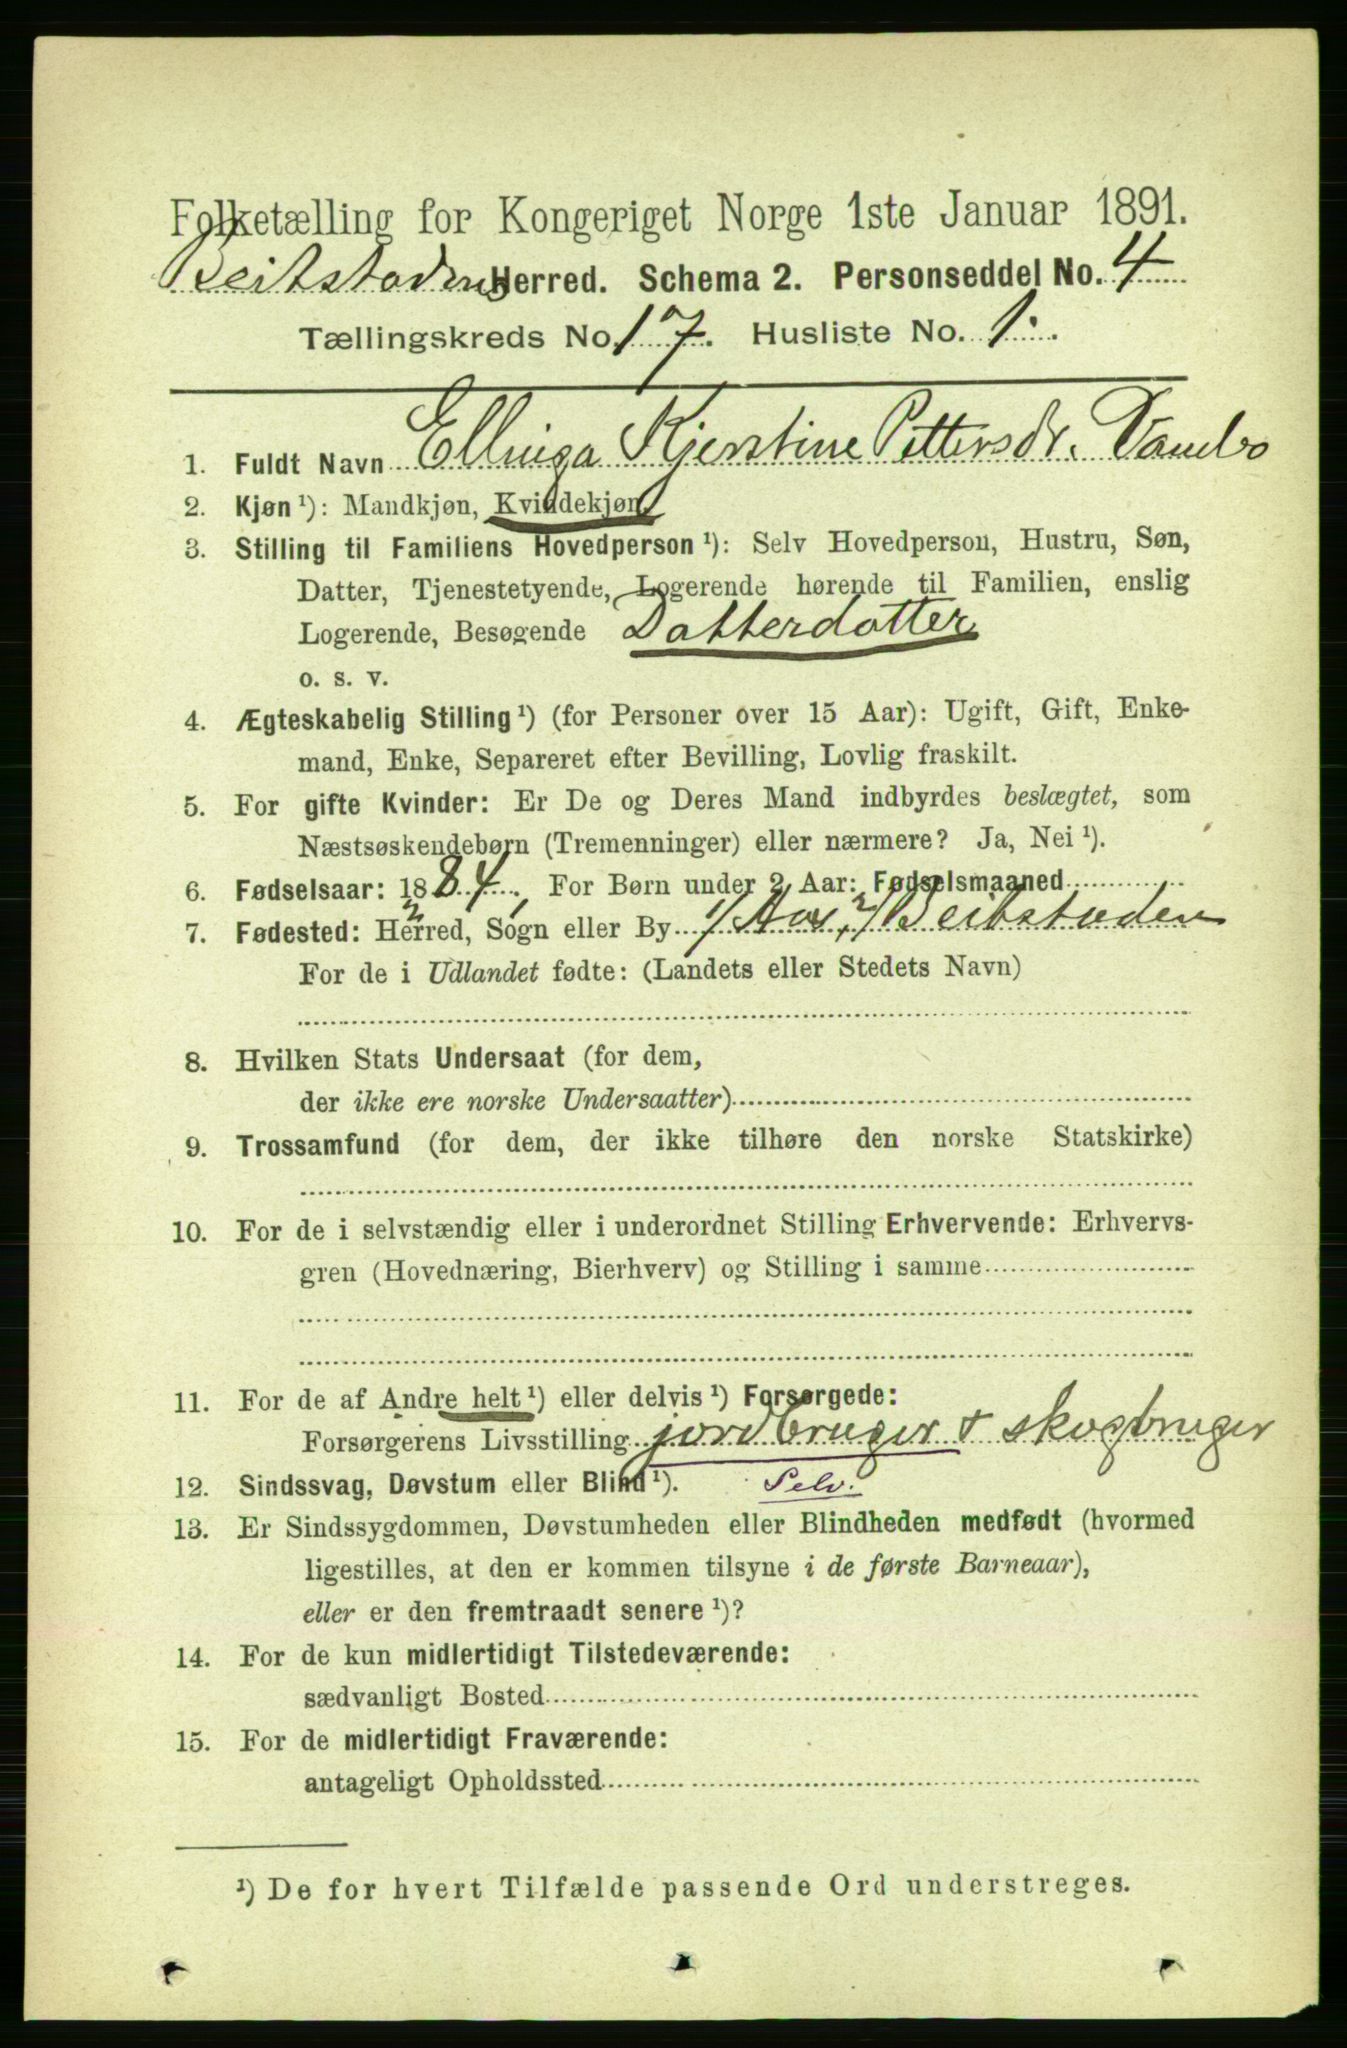 Folketælling for Kongeriget Norge 1ste Januar 1891.
Beitstadens Herred. Schema 2. Personseddel No. 4
Tællingskreds No. 17. Husliste No. 1.
1. Fuldt Navn Ellinga Kjerstine Pettersdr. Vambo
2. Kjøn ¹): Mandkjøn, Kvindekjøn.
3. Stilling til Familiens Hovedperson ¹): Selv Hovedperson, Hustru, Søn,
Datter, Tjenestetyende, Logerende hørende til Familien, enslig
Logerende, Besøgende Datterdatter
o. s. v.
4. Ægteskabelig Stilling ¹) (for Personer over 15 Aar): Ugift, Gift, Enke-
mand, Enke, Separeret efter Bevilling, Lovlig fraskilt.
5. For gifte Kvinder: Er De og Deres Mand indbyrdes beslægtet, som
Næstsøskendebørn (Tremenninger) eller nærmere? Ja, Nei ¹).
6. Fødselsaar: 1884. For Børn under 2 Aar: Fødselsmaaned
7. Fødested: Herred, Sogn eller By 1/ 2/ Beitstaden
For de i Udlandet fødte: (Landets eller Stedets Navn)
8. Hvilken Stats Undersaat (for dem,
der ikke ere norske Undersaatter)
9. Trossamfund (for dem, der ikke tilhøre den norske Statskirke)
10. For de i selvstændig eller i underordnet Stilling Erhvervende: Erhvervs-
gren (Hovednæring, Bierhverv) og Stilling i samme
11. For de af Andre helt ¹) eller delvis ¹) Forsørgede:
Forsørgerens Livsstilling jordbruger & skogbruger
12. Sindssvag, Døvstum eller Blind ¹). Selv.
13. Er Sindssygdommen, Døvstumheden eller Blindheden medfødt (hvormed
ligestilles, at den er kommen tilsyne i de første Barneaar),
eller er den fremtraadt senere ¹)?
14. For de kun midlertidigt Tilstedeværende:
sædvanligt Bosted
15. For de midlertidigt Fraværende:
antageligt Opholdssted
¹) De for hvert Tilfælde passende Ord understreges.